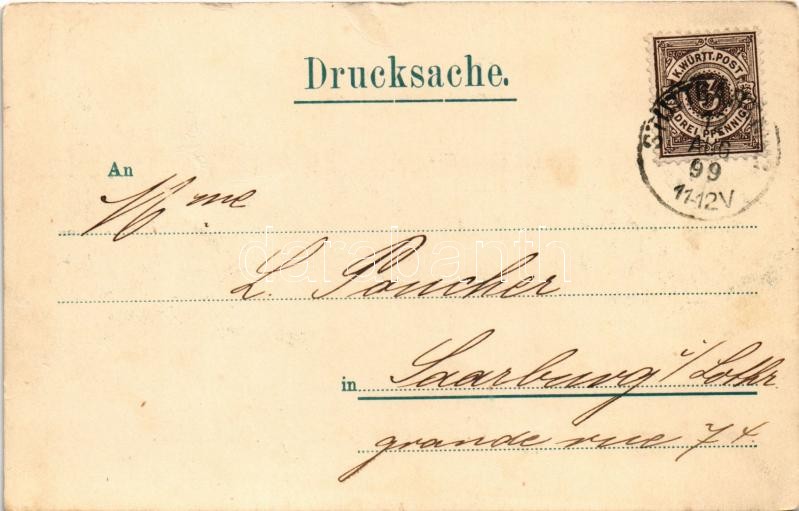 Drucksache.
K.WÜRTT.POST
3
DREI PFENNIGE
AUG
99
11-12V
An
Mme
L. Poncher
darabanth
in Saarburg i/Lothr.
grande rue 74.